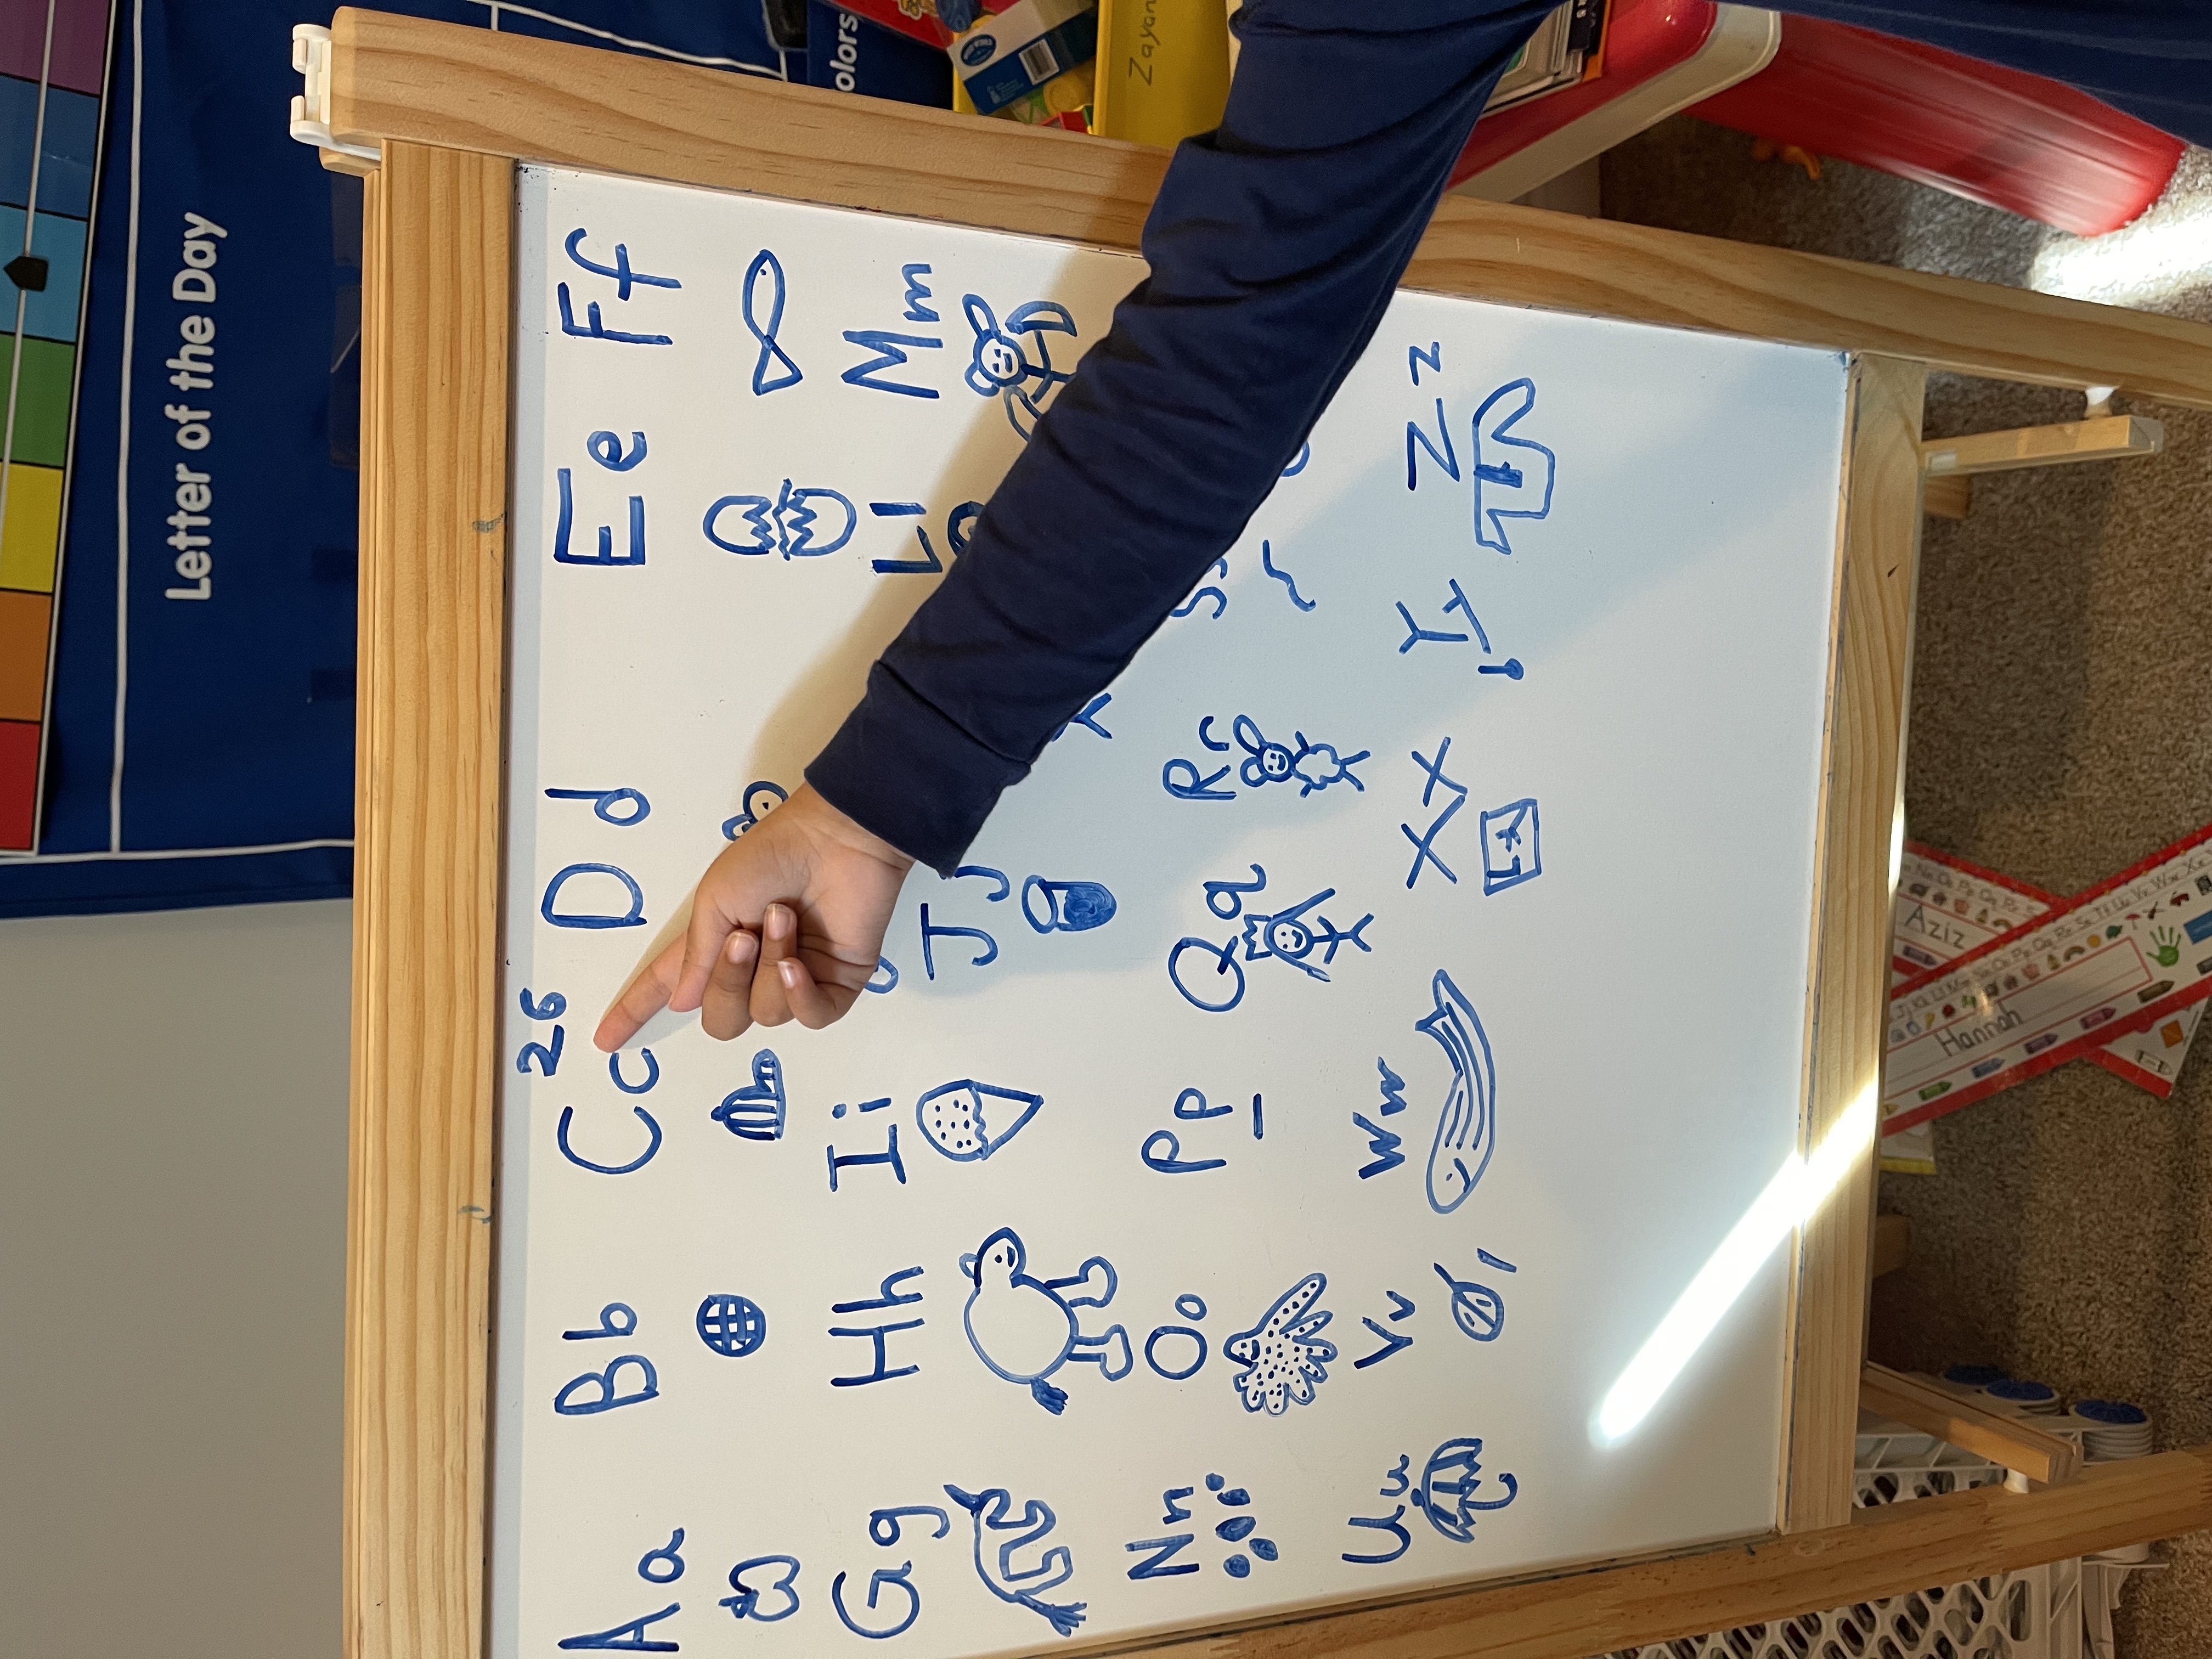 Letter of the Day
olors
Zayan
26
Aa Bb Cc Dd Ee Ff
Gg Hh Ii Jj Ll Mm
Nn Oo Pp Qq Rr Ss
Uu Vv Ww Xx Yy Zz
Aziz
Hannah